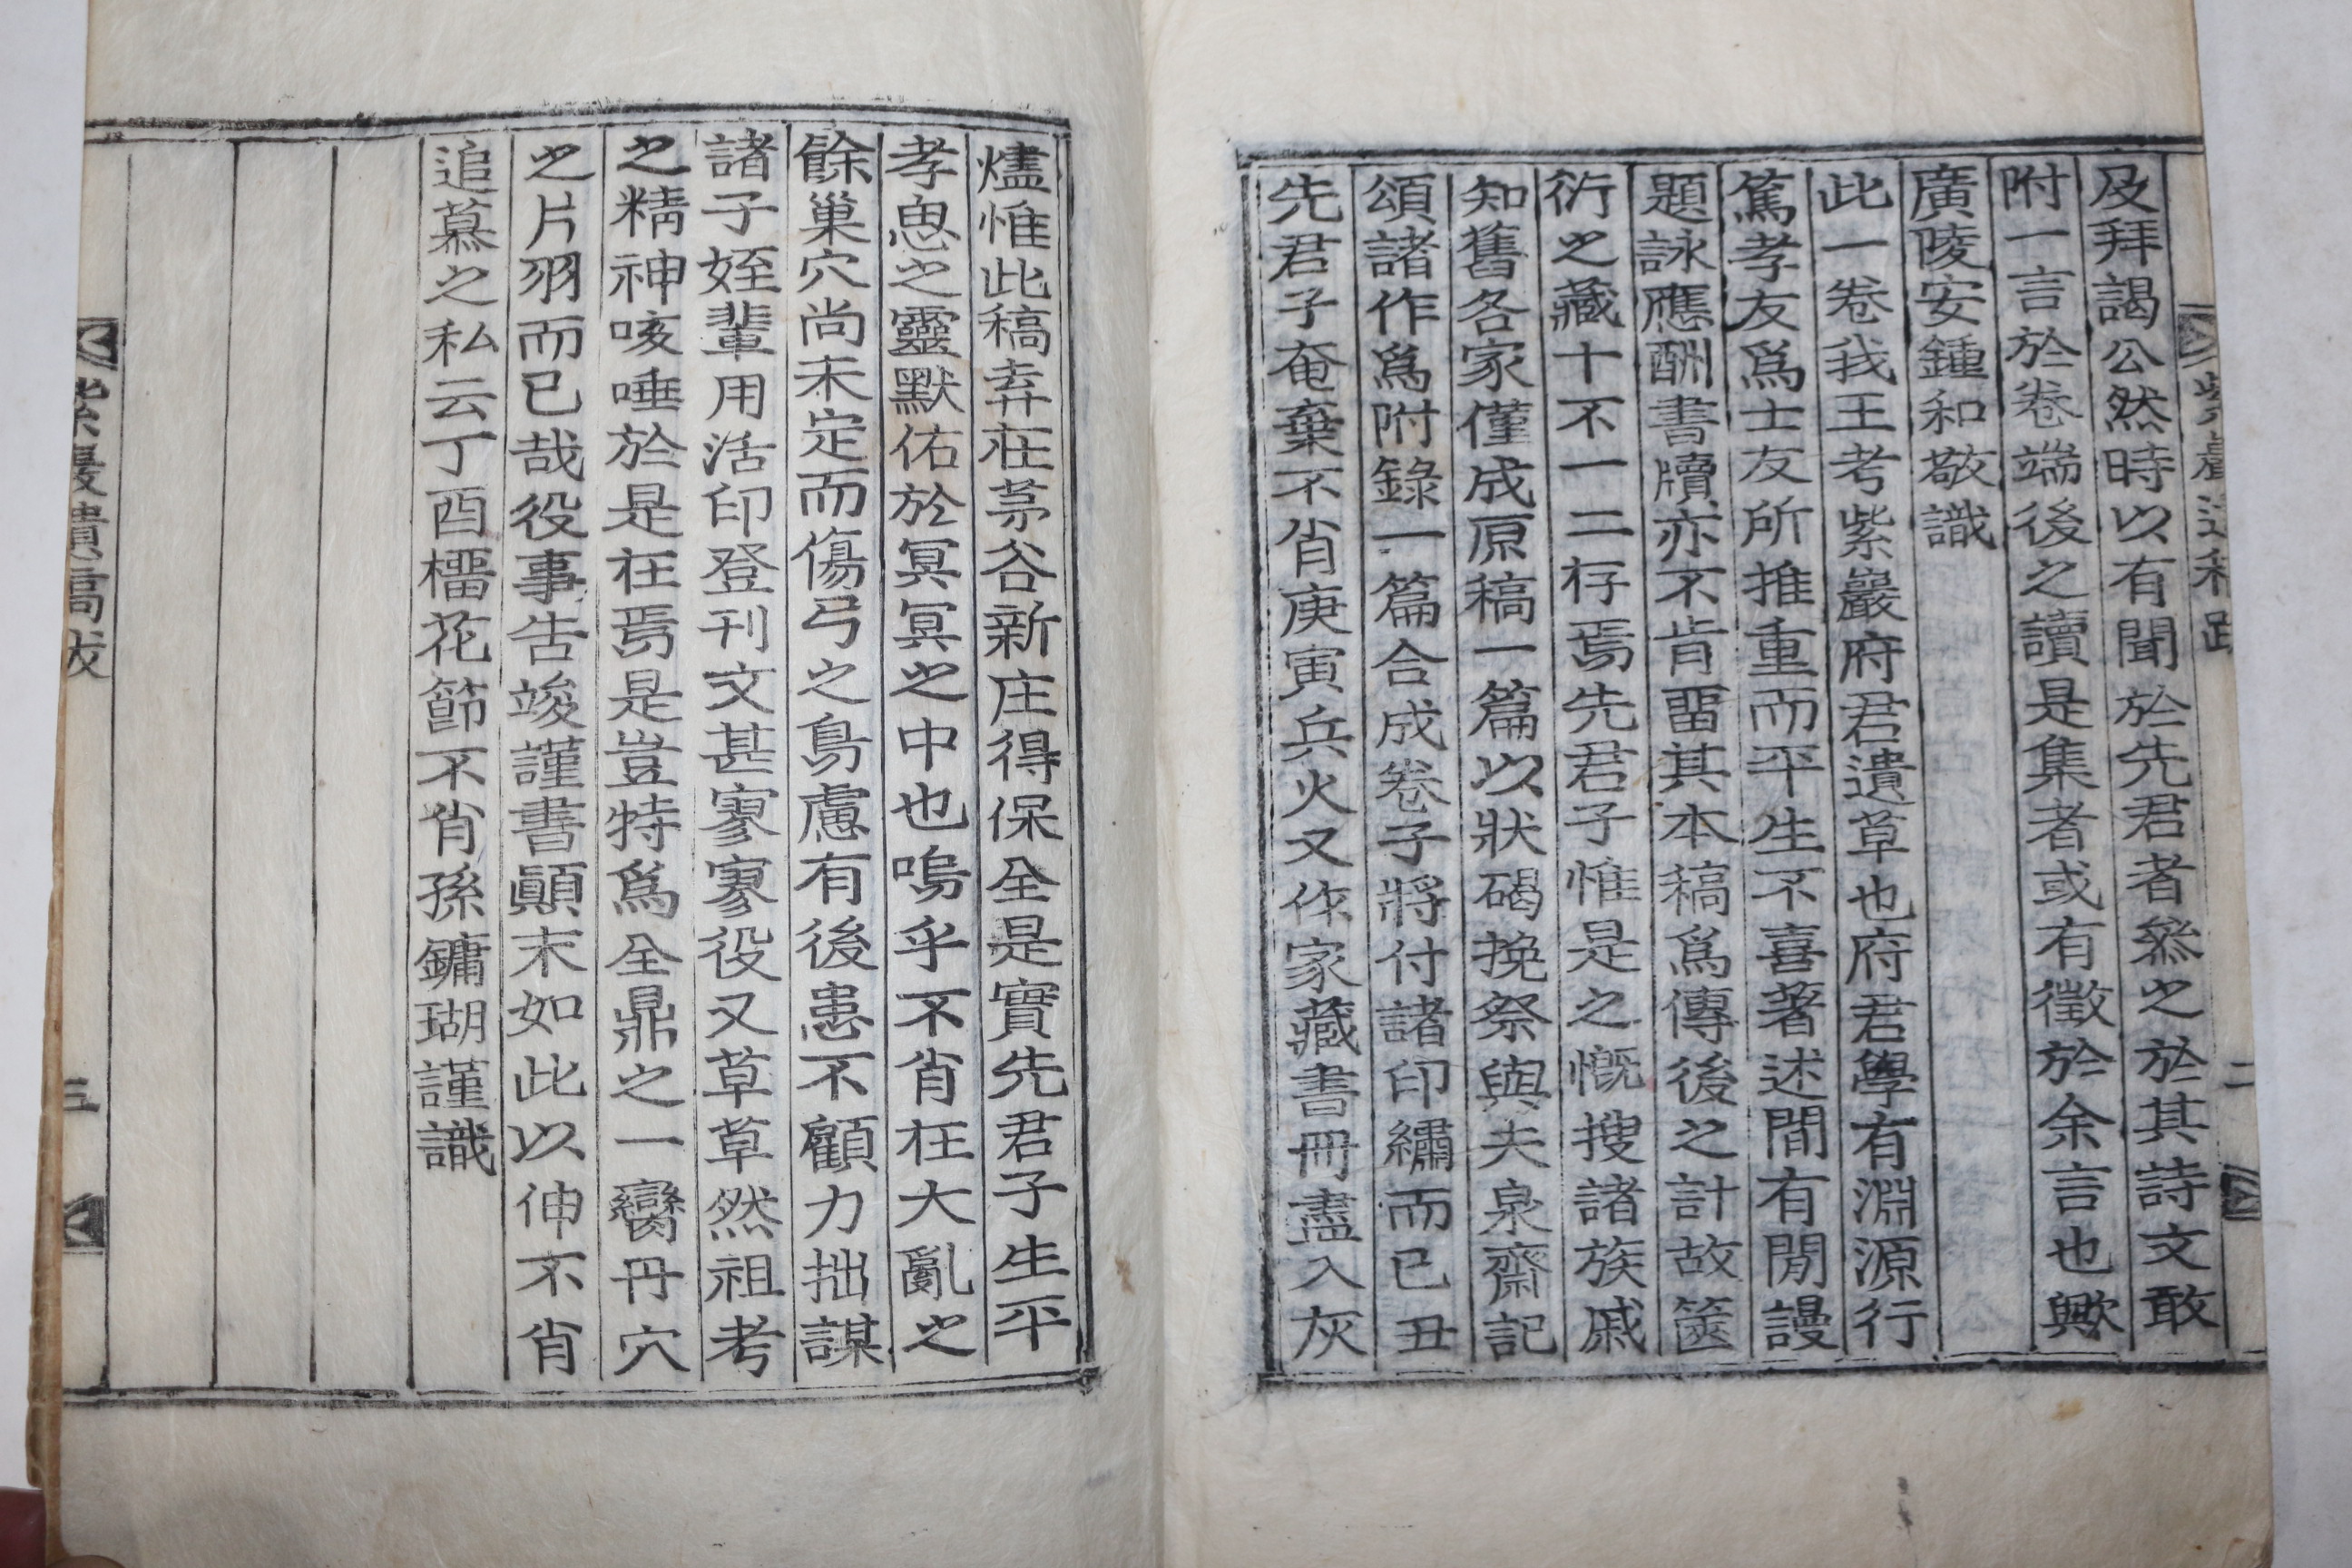 及拜謁公然時以有聞於先君者叅之於其詩文敢
附一言於卷端後之讀是集者或有徵於余言也歟
廣陵安鍾和敬識
此一卷我王考紫巖府君遺草也府君學有淵源行
篤孝友爲士友所推重而平生不喜著述間有閒謾
題詠應酬書牘亦不肯畱其本稿爲傳後之計故篋
衍之藏十不一二存焉先君子惟是之慨搜諸族戚
知舊各家僅成原稿一篇以狀碣挽祭與夫泉齋記
頌諸作爲附錄一篇合成卷子將付諸印繡而已丑
先君子奄棄不肖庚寅兵火又作家藏書冊盡入灰
燼惟此稿弆在茅谷新庄得保全是實先君子生平
孝思之靈默佑於冥冥之中也嗚乎不肖在大亂之
餘巢穴尚未定而傷弓之鳥慮有後患不顧力拙謀
諸子姪輩用活印登刊文甚寥寥役又草草然祖考
之精神咳唾於是在焉是豈特爲全鼎之一臠丹穴
之片羽而已哉役事告竣謹書顚末如此以伸不肖
追慕之私云丁酉榴花節不肖孫鏞瑚謹識
二
三